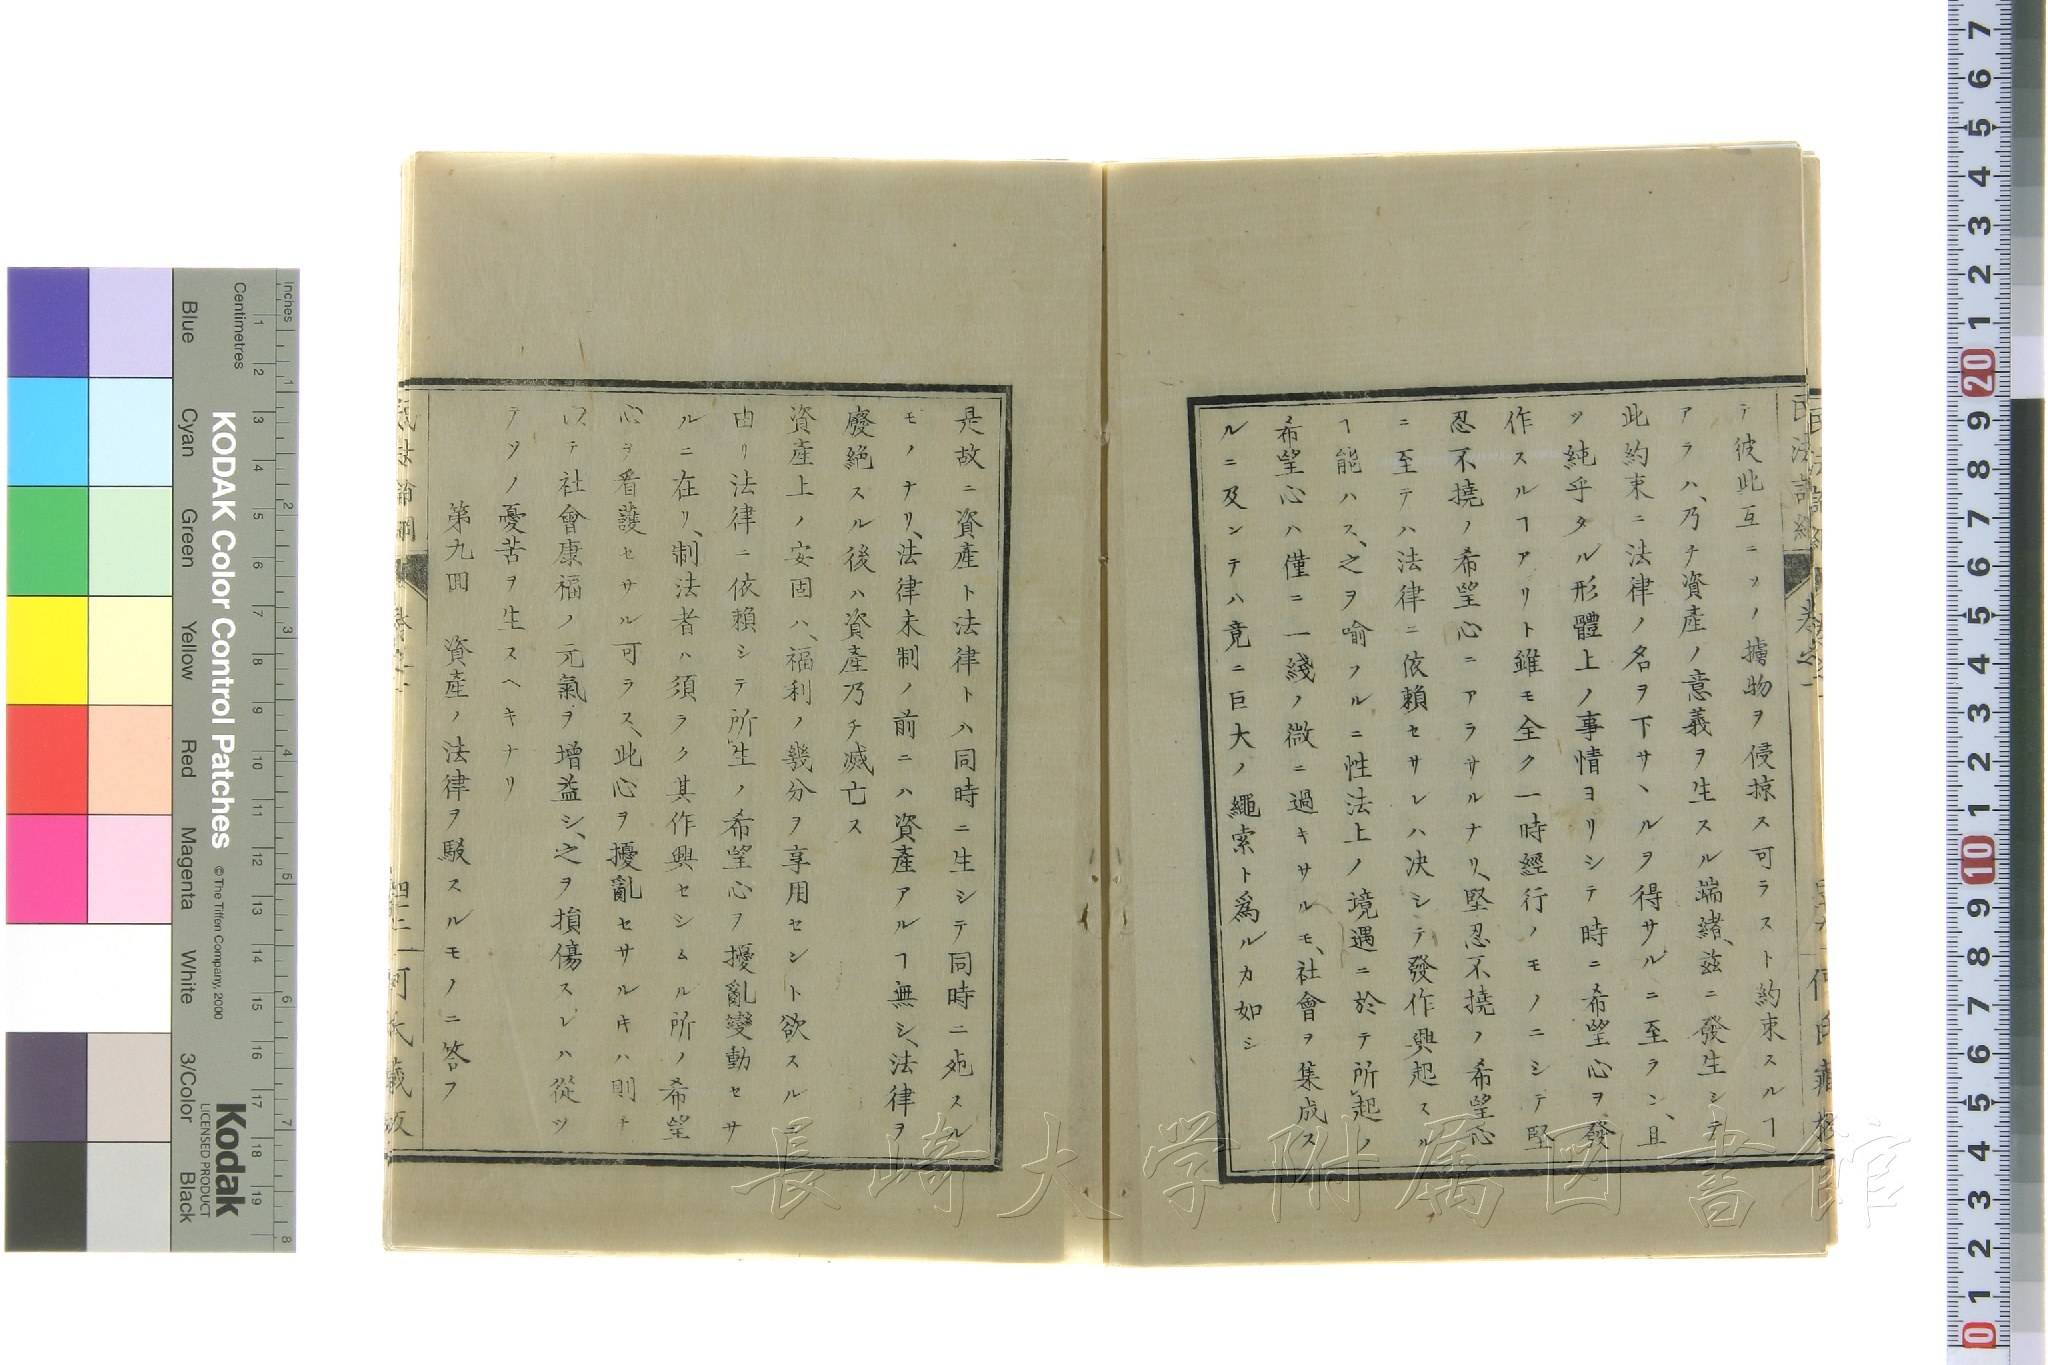 テ彼此互ニソノ擄物ヲ侵掠ス可ラスト約束スルヿ
アラハ、乃チ資產ノ意義ヲ生スル端緒、茲ニ發生シテ
此約束ニ法律ノ名ヲ下サヽルヲ得サルニ至ラン、且
ツ純乎タル形體上ノ事情ヨリシテ時ニ希望心ヲ發
作スルヿアリト雖モ全ク一時經行ノモノニシテ堅
忍不撓ノ希望心ニアラサルナリ、堅忍不撓ノ希望心
ニ至テハ法律ニ依賴セサレハ决シテ發作興起スル
ヿ能ハス、之ヲ喩フルニ性法上ノ境遇ニ於テ所起ノ
希望心ハ僅ニ一綫ノ微ニ過キサルモ、社會ヲ集成ス
ルニ及ンテハ竟ニ巨大ノ繩索ト爲ルカ如シ
是故ニ資產ト法律トハ同時ニ生シテ同時ニ死スル
モノナリ、法律未制ノ前ニハ資產アルヿ無シ、法律ヲ
廢絕スル後ハ資產乃チ滅亡ス
資產上ノ安固ハ、福利ノ幾分ヲ享用セント欲スルニ
由リ法律ニ依賴シテ所生ノ希望心ヲ擾亂變動セサ
ルニ在リ、制法者ハ須ラク其作興セシムル所ノ希望
心ヲ看護セサル可ラス、此心ヲ擾亂セサルキハ則チ
以テ社會康福ノ元氣ヲ增益シ、之ヲ損傷スレハ從ツ
テソノ憂苦ヲ生スヘキナリ
第九回 資產ノ法律ヲ駁スルモノニ答フ
四十二
何氏藏版
KODAK Color Control Patches
© The Tiffen Company, 2000
Kodak
LICENSED PRODUCT
Inches
Centimetres
Blue
Cyan
Green
Yellow
Red
Magenta
White
3/Color
Black
長崎大学附属図書館